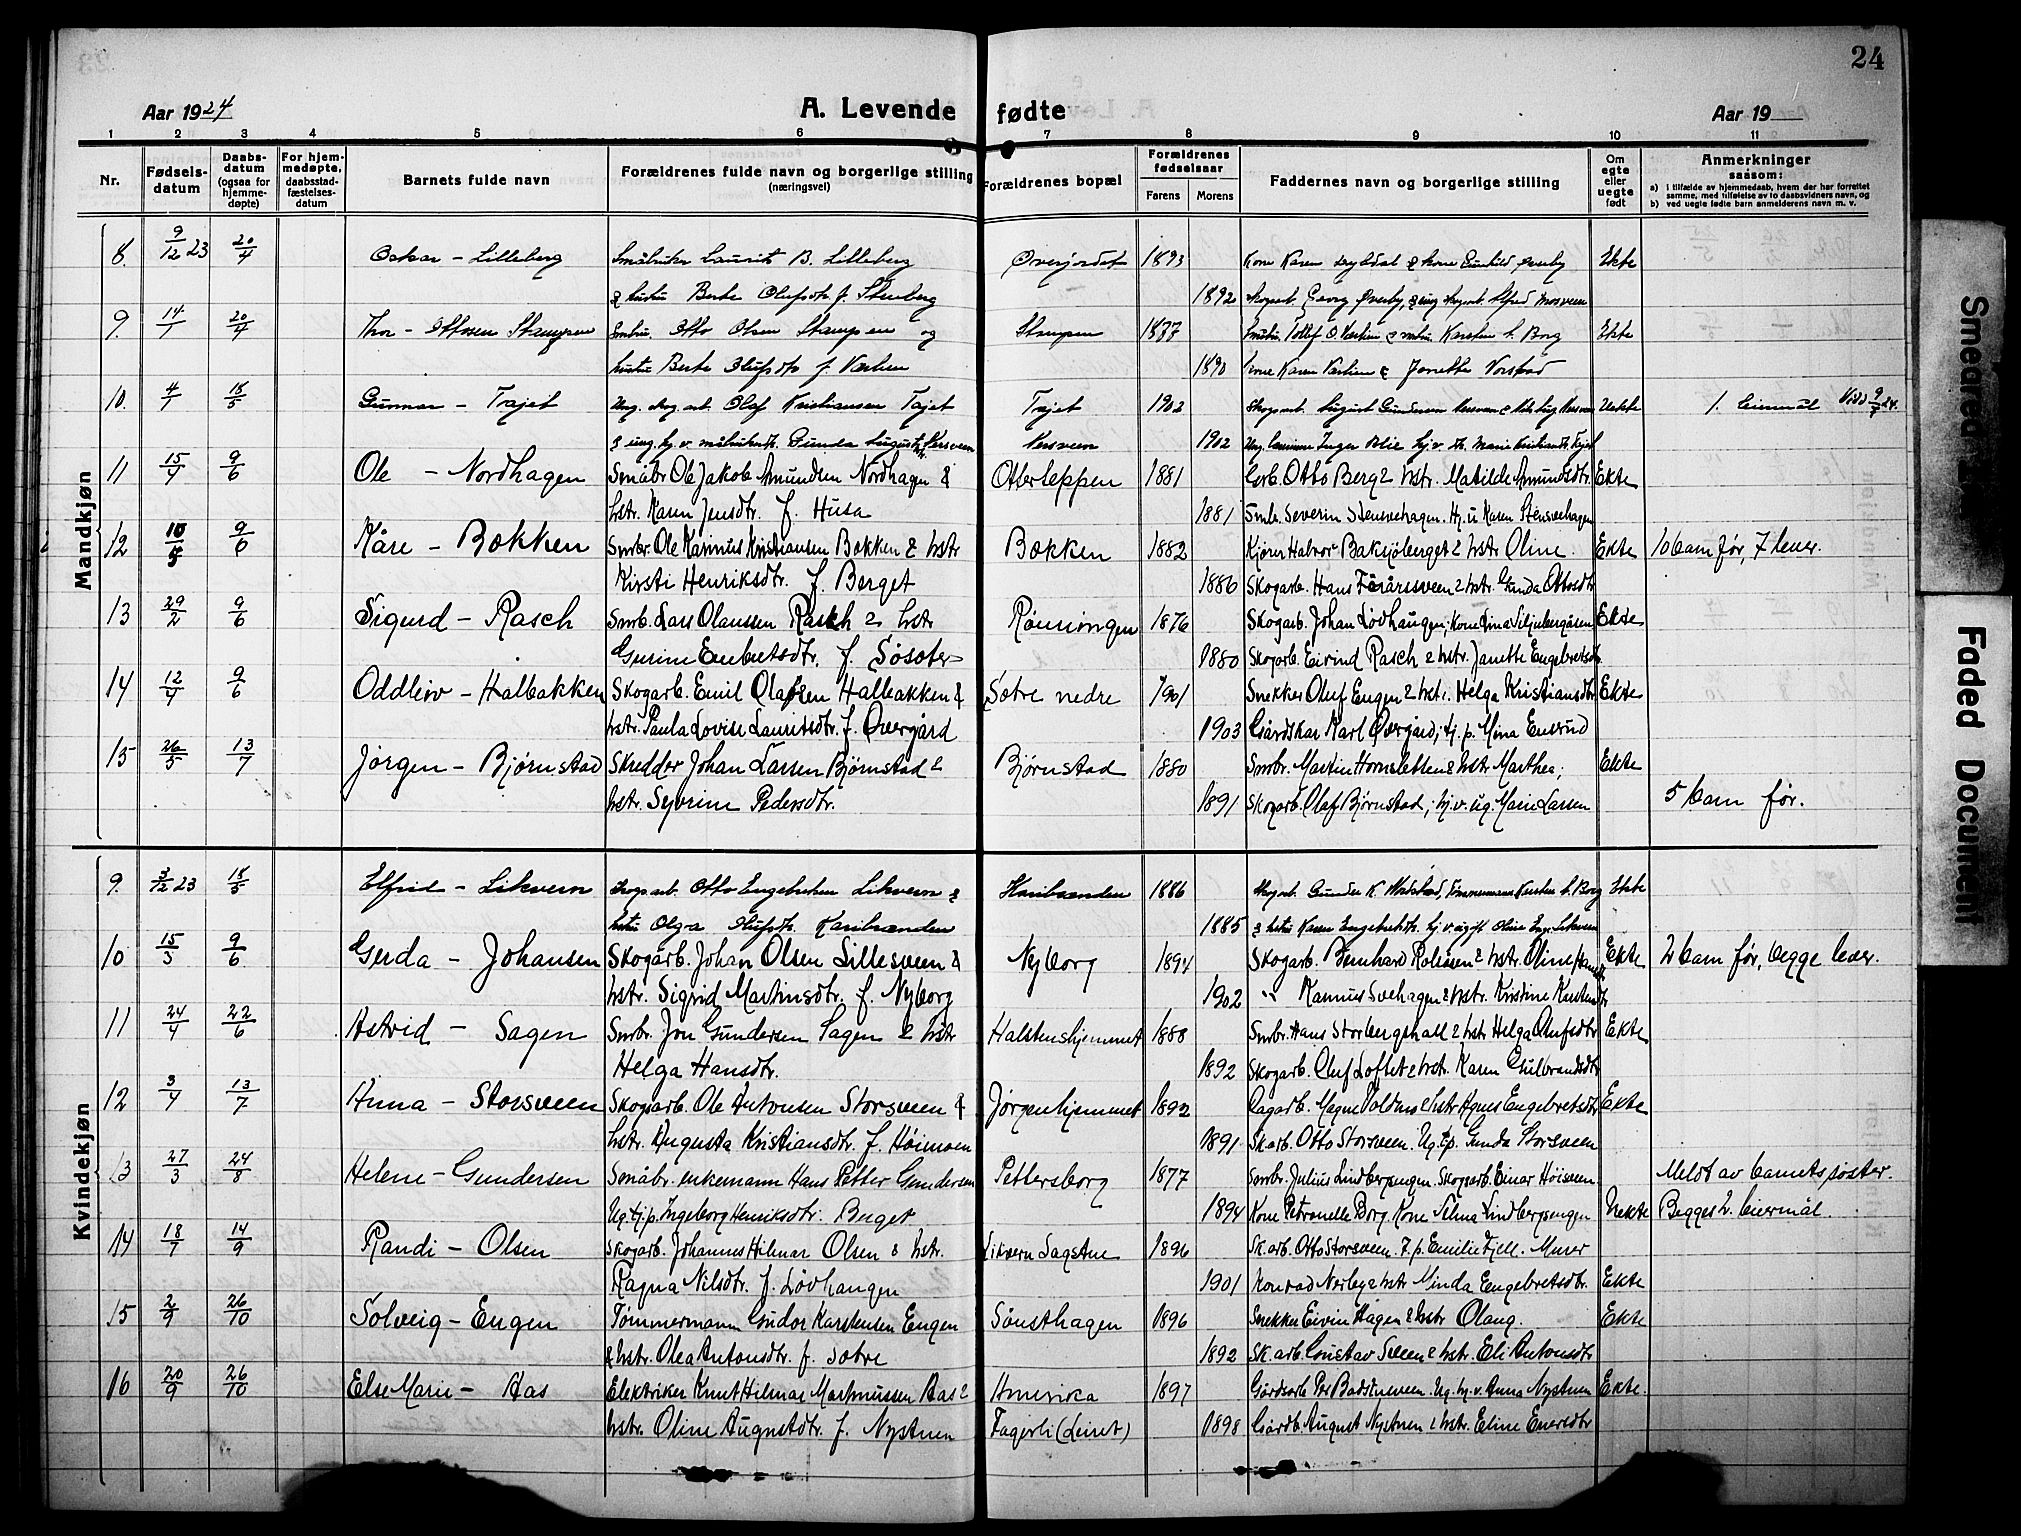 24
Aar 1924
A. Levende fødte
Aar 19
1 2 3 4 5 6 7 8 9 10 11
Nr.
Fødselsdatum
Daabsdatum (ogsaa for hjemmedøpte)
For hjemmedøpte, daabsstadfæstelsesdatum
Barnets fulde navn
Forældrenes fulde navn og borgerlige stilling (næringsvei)
Forældrenes bopæl
Forældrenes fødselsaar
Farens Morens
Faddernes navn og borgerlige stilling
Om egte eller uegte født
Anmerkninger saasom:
a) i tilfælde av hjemmedaab, hvem der har forrettet samme, med tilføielse av to daabsvidners navn, og
b) ved uegte fødte barn anmelderens navn m. v.
Mandkjøn
8. 9/12 23 20/4 Oskar - Lilleberg Småbruker Laurits B. Lilleberg Øverjordet 1893 Kone Karen & kone Gunhild Øverby Ekte
& hustru Berte Olufsdtr. f. Stenberg 1892 Skogsarb. Georg Øverby, & ung skogsarb. Alfred Mosveen
9. 14/1 20/4 Thor - Ottosen Stampen Småbr. Otto Olsen Stampen og Stampen 1877 Karsten h. Borg Ekte
hustru Berte Olufsdtr f. Værhem 1890 Kone Karen & Janette
10. 4/1 18/5 Gunnar - Trøjet Ung. skog.arb. Olaf Kristiansen Tajet Trøjet 1902 Skogsarb. August Gundersen Uekte 1. leiermål
& ung. hj. v. Gunda Augusts 1902
11 15/4 9/6 Ole - Nordhagen Småbr Ole Jakob Amundsen Nordhagen & Otterleppen 1881 Otto Berg & hstr. Matilde Amundsdtr. Ekte
hstr. Karen Jensdtr. f. Husa 1881 Smbr. Severin Stensvehagen. Hj. u Karen Stensvehagen
12 10/5 9/6 Kåre - Bækken Smbr. Ole Karinius Kristiansen Bækken & hstr Bækken 1882 Kjører Halvor Baksjøberget & hstr Oline. Ekte 10 barn før, 7 lever.
Kirsti Henriksdtr. f. Berget 1886 Skogarb. Hans & hstr. Gunda Ottosdtr
13 29/2 9/6 Sigurd - Rasch Smb. Lars Olaussen Rasch & hstr Rønsingen 1876 Skogarb. Johan Lövhaugen; Kone Lina Siljubergåsen Ekte
Gurine Embretsdtr. f. Søsæter 1880 Skogarb. Eivind Rasch & hstr. Janette Engebretsdtr
14 12/4 9/6 Oddleiv - Halbakken Skogarb. Emil Olafsen Halbakken & Sætre nedre 1901 Snekker Oluf Engen & hstr. Helga Kristiansdtr Ekte
hstr. Paula Lovise Lauritsdtr. f. Øvergård 1903 Gårdskar Karl Øvergård; tj. p. Mina Enerud
15 26/5 13/7 Jörgen - Bjørnstad Skredder Johan Larsen Bjørnstad & Bjørnstad 1880 Smbr. Martin Hornsletten & hstr Marthea; Ekte
hstr. Severine Pedersdtr. 1891 Skogarb. Olaf Bjørnstad; hj. v. ug. Marie Larsen 5 barn før.
Kvindekjøn
9. 3/12 23 18/5 Elfrid - Likvern Skogs.arb. Otto Engebretsen Likvern & 1886 Skogarb. Gunder K. Tømmermann Karsten h. Borg Ekte
hstru Olga Olufsdtr. 1885 & hstru Karen Engebretsdtr. hj. v. ugift Oline Eng. Likvern
10 15/3 9/6 Gerda - Johansen Skogarb. Johan Olsen Lillesveen & Nyborg 1894 Skogarb. Bernhard & hstr. Oline Hansdtr Ekte 2 barn før, begge lever.
hstr. Sigrid Martinsdtr. f. Nyborg 1902 " Rasmus Svehagen & hstr. Kristine
11 24/4 22/6 Astrid - Sagen Smbr. Jon Gundersen Sagen & hstr Halstenshjemmet 1888 Smbr. Hans Storbergshall & hstr Helga Olufsdtr Ekte
Helga Hansdtr. 1892 Skogarb. Oluf Loftet & hstr. Karen Gulbrandsdtr
12 3/4 13/7 Anna - Storsveen Skogsarb. Ole Antonsen Storsveen & Jørgenhjemmet 1892 Magne & hstr Agnes Engebretsdtr Ekte
hstr. Augusta Kristiansdtr. f. Höimoen 1891 Sk.arb. Otto Storsveen. Ug. tj.p. Gunda Storsveen
13 27/3 24/8 Helene - Gundersen Småbr. enkemann Hans Petter Gundersen Pettersborg 1877 Smbr. Julius Lindbergengen. Skogarb. Einar Höisveen Meldt av barnets søster.
Ug. tj.p. Ingeborg Henriksdtr. Berget 1894 Kone Petronelle Borg. Kone Selma Lindbergengen Uekte Begges 2. leiermål.
14 18/7 14/9 Randi - Olsen Skogarb. Johannes Hilmar Olsen & hstr. Likvern Sagstue 1896 Sk.arb. Otto Storsveen. T.p. Emilie Fjell. Murer
Ragna Nilsdtr. f. Lövhaugen 1901 Konrad Nerby & hstr Minda Engebretsdtr. Ekte
15 2/9 26/10 Solveig - Engen Tömmermann Gudor Karstensen Engen Sönsthagen 1896 Snekker Eivin Hagen & hstr Olaug. Ekte
& hstr. Olea Antonsdtr. f. Sætre 1892 Sk.arb. Gustav Sveen & hstr. Eli Antonsdtr
16 20/9 26/10 Else Marie - Aas Elektriker Knut Hilmar Martinussen Aas & Amerika 1897 Gårdsarb Per Badstuveen. Ug. hj. v. Anna Nystuen Ekte.
hstr. Oline Augustdtr. f. Nystuen Fagerli (Leiret) 1898 Gårdb. August Nystuen & hstr. Eline Enersdtr
Smeared
Faded Document